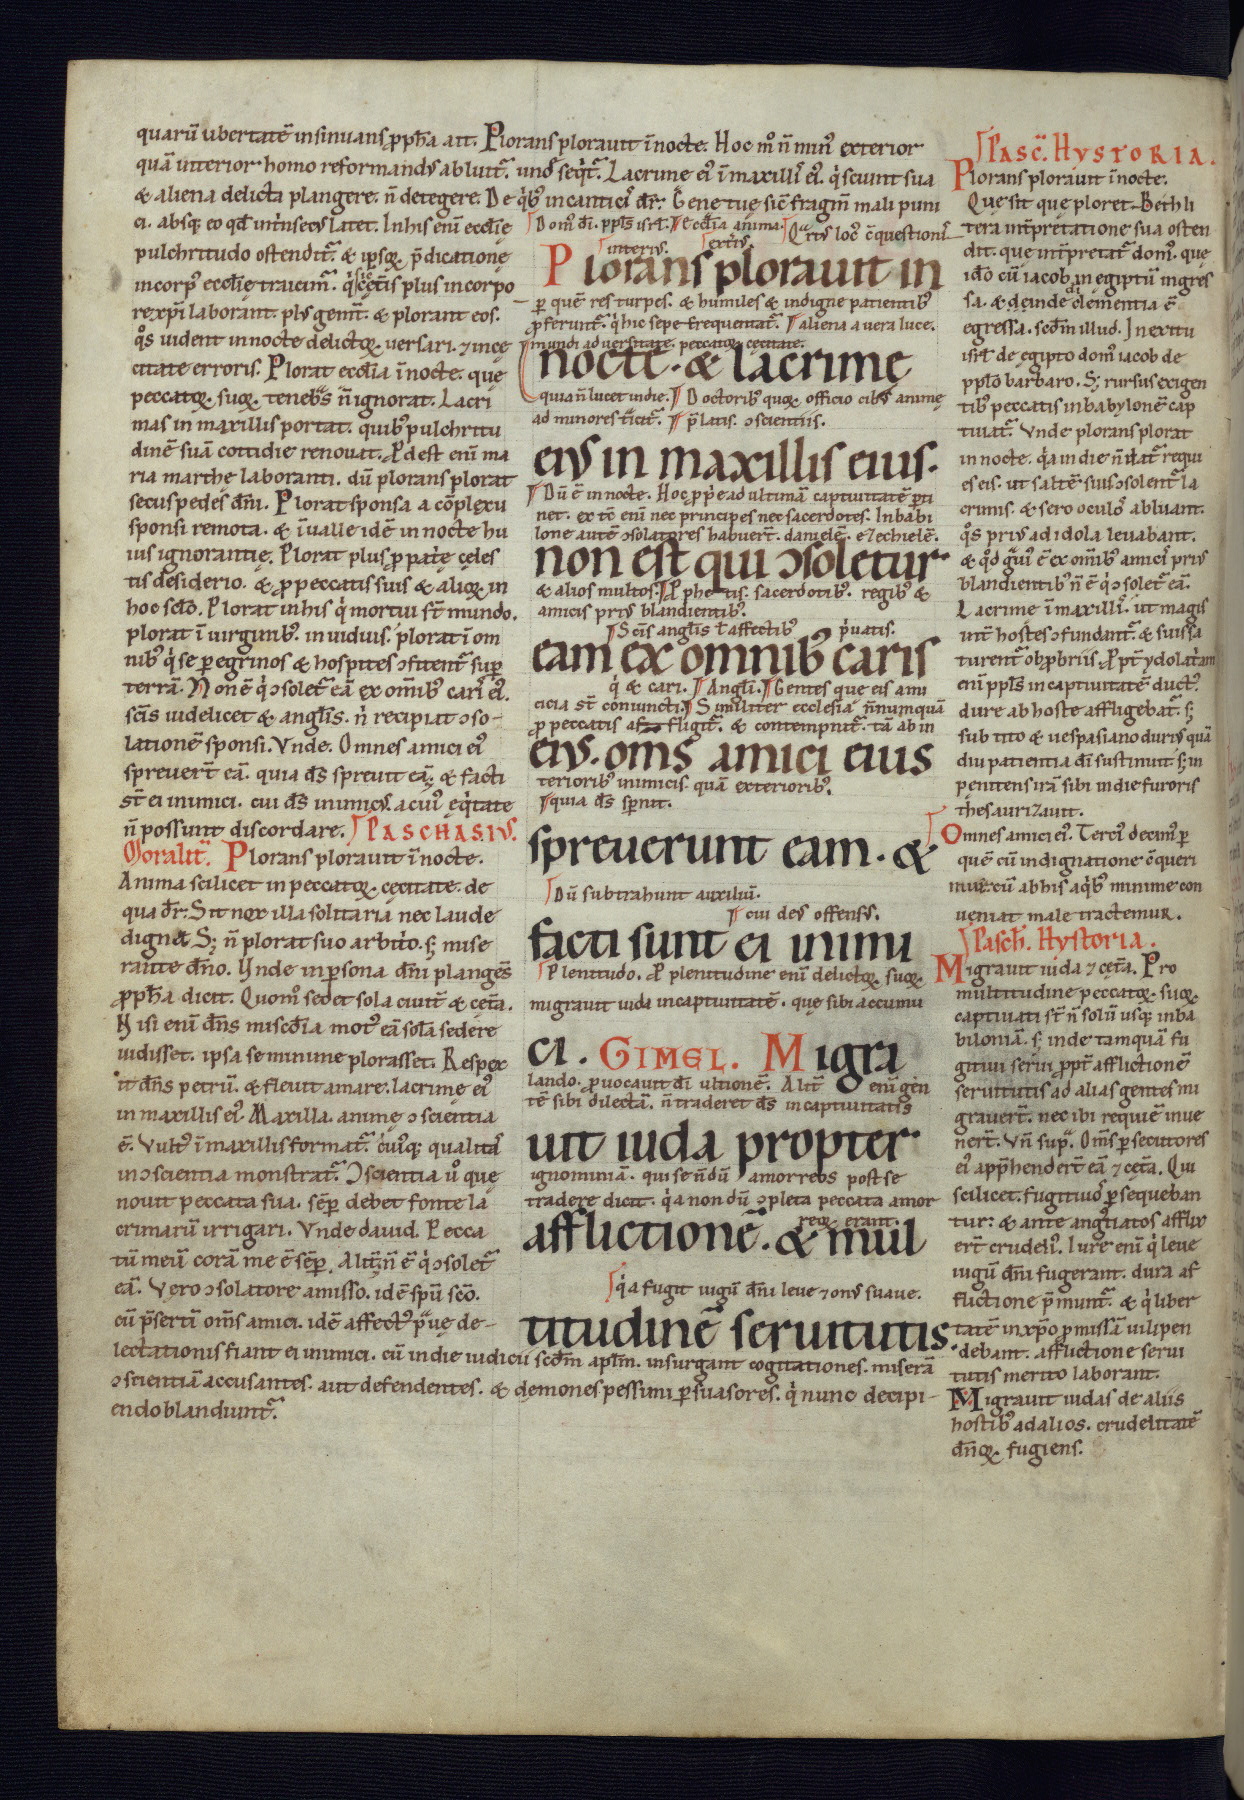 quarū ubertatē insinuans ꝓpħa ait. Plorans plorauit ī nocte. Hoc m̊ ñ min᷒ exterior
quā interior homo reformand᷒ abluit᷑. und̾ seqit᷑. Lacrime ei᷒ ī maxilł ei᷒. qͥ sciunt sua
& aliena delicta plangere. ñ detegere. De qͥb᷒ in canticͥ dr̄. Gene tuę sic̄ fragm̄ mali puni
ci. absq; eo qđ int̾nsecus latet. In his enī ecclīe
pulchritudo ostendit᷑. & ipsoꝝ p̄dicatione
in corp᷒ ecclīę traicim᷑. qͥ sc̄etis plus in corpo
re xp̄i laborant. plus gemt̄. & plorant eos.
qͦs uident in nocte delictoꝝ uersari. ⁊ in cę
citate erroris. Plorat ecclīa ī nocte. quę
peccatoꝝ suoꝝ tenebͣs ñ ignorat. Lacri
mas in maxillis portat. quib᷒ pulchritu
dinē suā cottidie renouat. Prodest enī ma
ria marthe laboranti. dū plorans plorat
secus pedes dn̄i. Plorat sponsa a cōplexu
sponsi remota. & ī ualle idē in nocte hu
ius ignorantię. Plorat plus ꝓ patͥe celes
tis desiderio. & ꝓ peccatis suis & alioꝝ in
hoc sclō. Plorat in his qͥ mortui st̄ mundo.
plorat ī uirginib᷒. in uiduis. plorat ī om
nib᷒ qͥ se ꝑegrinos & hospites ɔfitent᷑ sup̄
terrā. Non ē qͥ ɔsolet᷑ eā ex om̄ib᷒ carͥ ei᷒.
scīs uidelicet & angłis. nͥ recipiat ɔso-
lationē sponsi. Vnde. Omnes amici ei᷒
spreuert̄ eā. quia ds̄ spreuit eā; & facti
st̄ ei inimici. cui ds̄ inimic᷒. a cui᷒ eqͥtate
ñ possunt discordare. PASCHASIVS.
Moralit̾. Plorans plorauit ī nocte.
Anima scilicet in peccatoꝝ cecitate. de
qua dr̄. Sit nox illa solitaria nec laude
digna. S; ñ plorat suo arbitͥo. s; mise
rante dn̄o. Vnde in ꝑsona dn̄i plangēs
ꝓpħa dicit. Quom̊ sedet sola ciuit̄ & cet̄a.
Nisi enī dn̄s miscđia mot᷒ eā solā sedere
uidisset. ipsa se minime plorasset. Respex
it dn̄s petrū. & fleuit amare. lacrimę ei᷒
in maxillis ei᷒. Maxilla. animę ɔscientia
ē. Vult᷒ ī maxillis format᷑. cui᷒q; qualitas̾
in ɔscientia monstrat᷑. Ɔscientia u̾o quę
nouit peccata sua. semp̄ debet fonte la
crimarū irrigari. Vnde dauid. Pecca
tū meū corā me ē semp̄. Alit̾; ñ ē qͥ ɔsolet᷑
eā. Vero ɔsolatore amisso. idē spū scō.
cū p̄sertī om̄s amici. idē affect᷒ pͣuę de-
lectationis fiant ei inimici. cū in die iudicii scđm apłm. insurgant cogitationes. miserā
ɔscientiā accusantes. aut defendentes. & demones pessimi ꝑsuasores. qͥ nunc decipi-
endo blandiunt᷑.
Dom᷒ dī. ppłs isrł. Ecclīa. anima. Qͣrtus loc᷒ cͦquestionͥ
interius. exteriͥus.
Plorans plorauit in
ꝑ quē res turpes. & humiles & indigne patientib᷒
ꝓferunt᷑. qͥ hic sepe frequentat᷑. aliena a uera luce.
mundi aduersitate. peccatoꝝ cecitate.
nocte. & lacrimę
quia ñ lucet in die. Doctorib᷒ quoꝝ officio cib᷒ animę
ad minores t̾icit᷑. p̄latis. ɔscientiis.
eius in maxillis eius.
Dū ē in nocte. Hoc ꝓpͥe ad ultimā captiuitatē ꝑti
net. ex tc̄ enī nec principes nec sacerdotes. In babi
lone autē ɔsolatores habuert̄. danielē. ezechielē.
non est qui ɔsoletur
& alios multos. Prophetis. sacerdotib᷒. regib᷒ &
amicis pri᷒ blandientib᷒.
Scīs angłis ł affectib᷒ pͥuatis.
eam ex omnib᷒ caris
qͥ & cari. Angłi. Gentes que eis ami
cicia st̄ coniuncti. Similiter ecclesia ñnumquā
ꝓ peccatis affligit᷑. & contempnit᷑. tā ab in
eius. oms̄ amici eius
teriorib᷒ inimicis. quā exteriorib᷒.
quia ds̄ sp̄nit.
spreuerunt eam. &
Dū subtrahunt auxiliū.
cui deus offensus.
facti sunt ei inimi
Plenitudo. Pro plenitudine enī delictoꝝ suoꝝ
migrauit iuda in captiuitatē. quę sibi accumu
ci. GIMEL. Migra
lando. ꝓuocauit dī ultionē. Alit̾ enī gen
tē sibi dilectā. ñ traderet ds̄ in captiuitatis
uit iuda propter
ignominiā. qui se ñdū amorreos post se
tradere dicit. qͥa nondū ɔpleta peccata amor
reoꝝ erant.
afflictionē. & mul
qͥa fugit iugū dn̄i leue ⁊ onus suaue.
titudinē seruitutis.
PASC̄. HYSTORIA.
Plorans plorauit in nocte.
Quę sit quę ploret. Beth li
tera int̾pretatione sua osten
dit. que int̾pretat᷑ dom᷒. que
ido̅ cū iacob in egiptū ingres
sa. & deinde dī clementia ē
egressa. scđm illud. In exitu
isrł de egipto dom᷒ iacob de
ppło barbaro. S; rursus exigen
tib᷒ peccatis in babylonē cap
tiuat᷑. Vnde plorans plorat
in nocte. qͥa in die ñ dat᷑ requi
es eis. ut saltē suis ɔsolent᷑ la
crimis. & sero oculos̾ abluant.
qͦs prius ad idola leuabant.
& qͦd gͣui᷒ ē ex om̄ib᷒ amicͥ prius
blandientib᷒ ñ ē qͥ ɔsolet᷑ eā.
Lacrime ī maxilł. ut magis
int̾ hostes ɔfundant᷑. & suis sa
turent᷑ obꝓbriis. Propt̾ ydolatͥam
enī ppłs in captiuitatē duct᷒.
dure ab hoste affligebat᷑. s;
sub tito & uespasiano durius quā
diu patientia dī sustinuit s; in
penitens irā sibi in die furoris
thesaurizauit.
Omnes amici ei᷒. Terci᷒ decim᷒ ꝑ
quē cū indignatione cͦqueri
mur. cū ab his a qͥb᷒ minime con
ueniat male tractemur.
Pasch̄. Hystoria.
Migrauit iuda ⁊ cet̄a. Pro
multitudine peccatoꝝ suoꝝ
captiuati st̄ ñ solū usq; in ba
biloniā. s; inde tamquā fu
gitiui serui ꝓpt̾ afflictionē
seruitutis ad alias gentes mi
grauert̄. nec ibi requiē inue
nert̄. Vn̄ supͣ. Om̄s ꝑsecutores
ei᷒ app̄hendert̄ eā & cet̄a. Qui
scilicet. fugitiuos̾ ꝑsequeban
tur: & ante angustiatos afflix
ert̄ crudeli᷒. Iure enī qͥ leue
iugū dn̄i fugerant. dura af
flictione p̄munt᷑. & qͥ liber
tatē in xp̄o ꝓmissā uilipen
debant. afflictione serui
tutis merito laborant.
Migrauit iudas de aliis
hostib᷒ ad alios. crudelitatē
dn̄oꝝ fugiens.